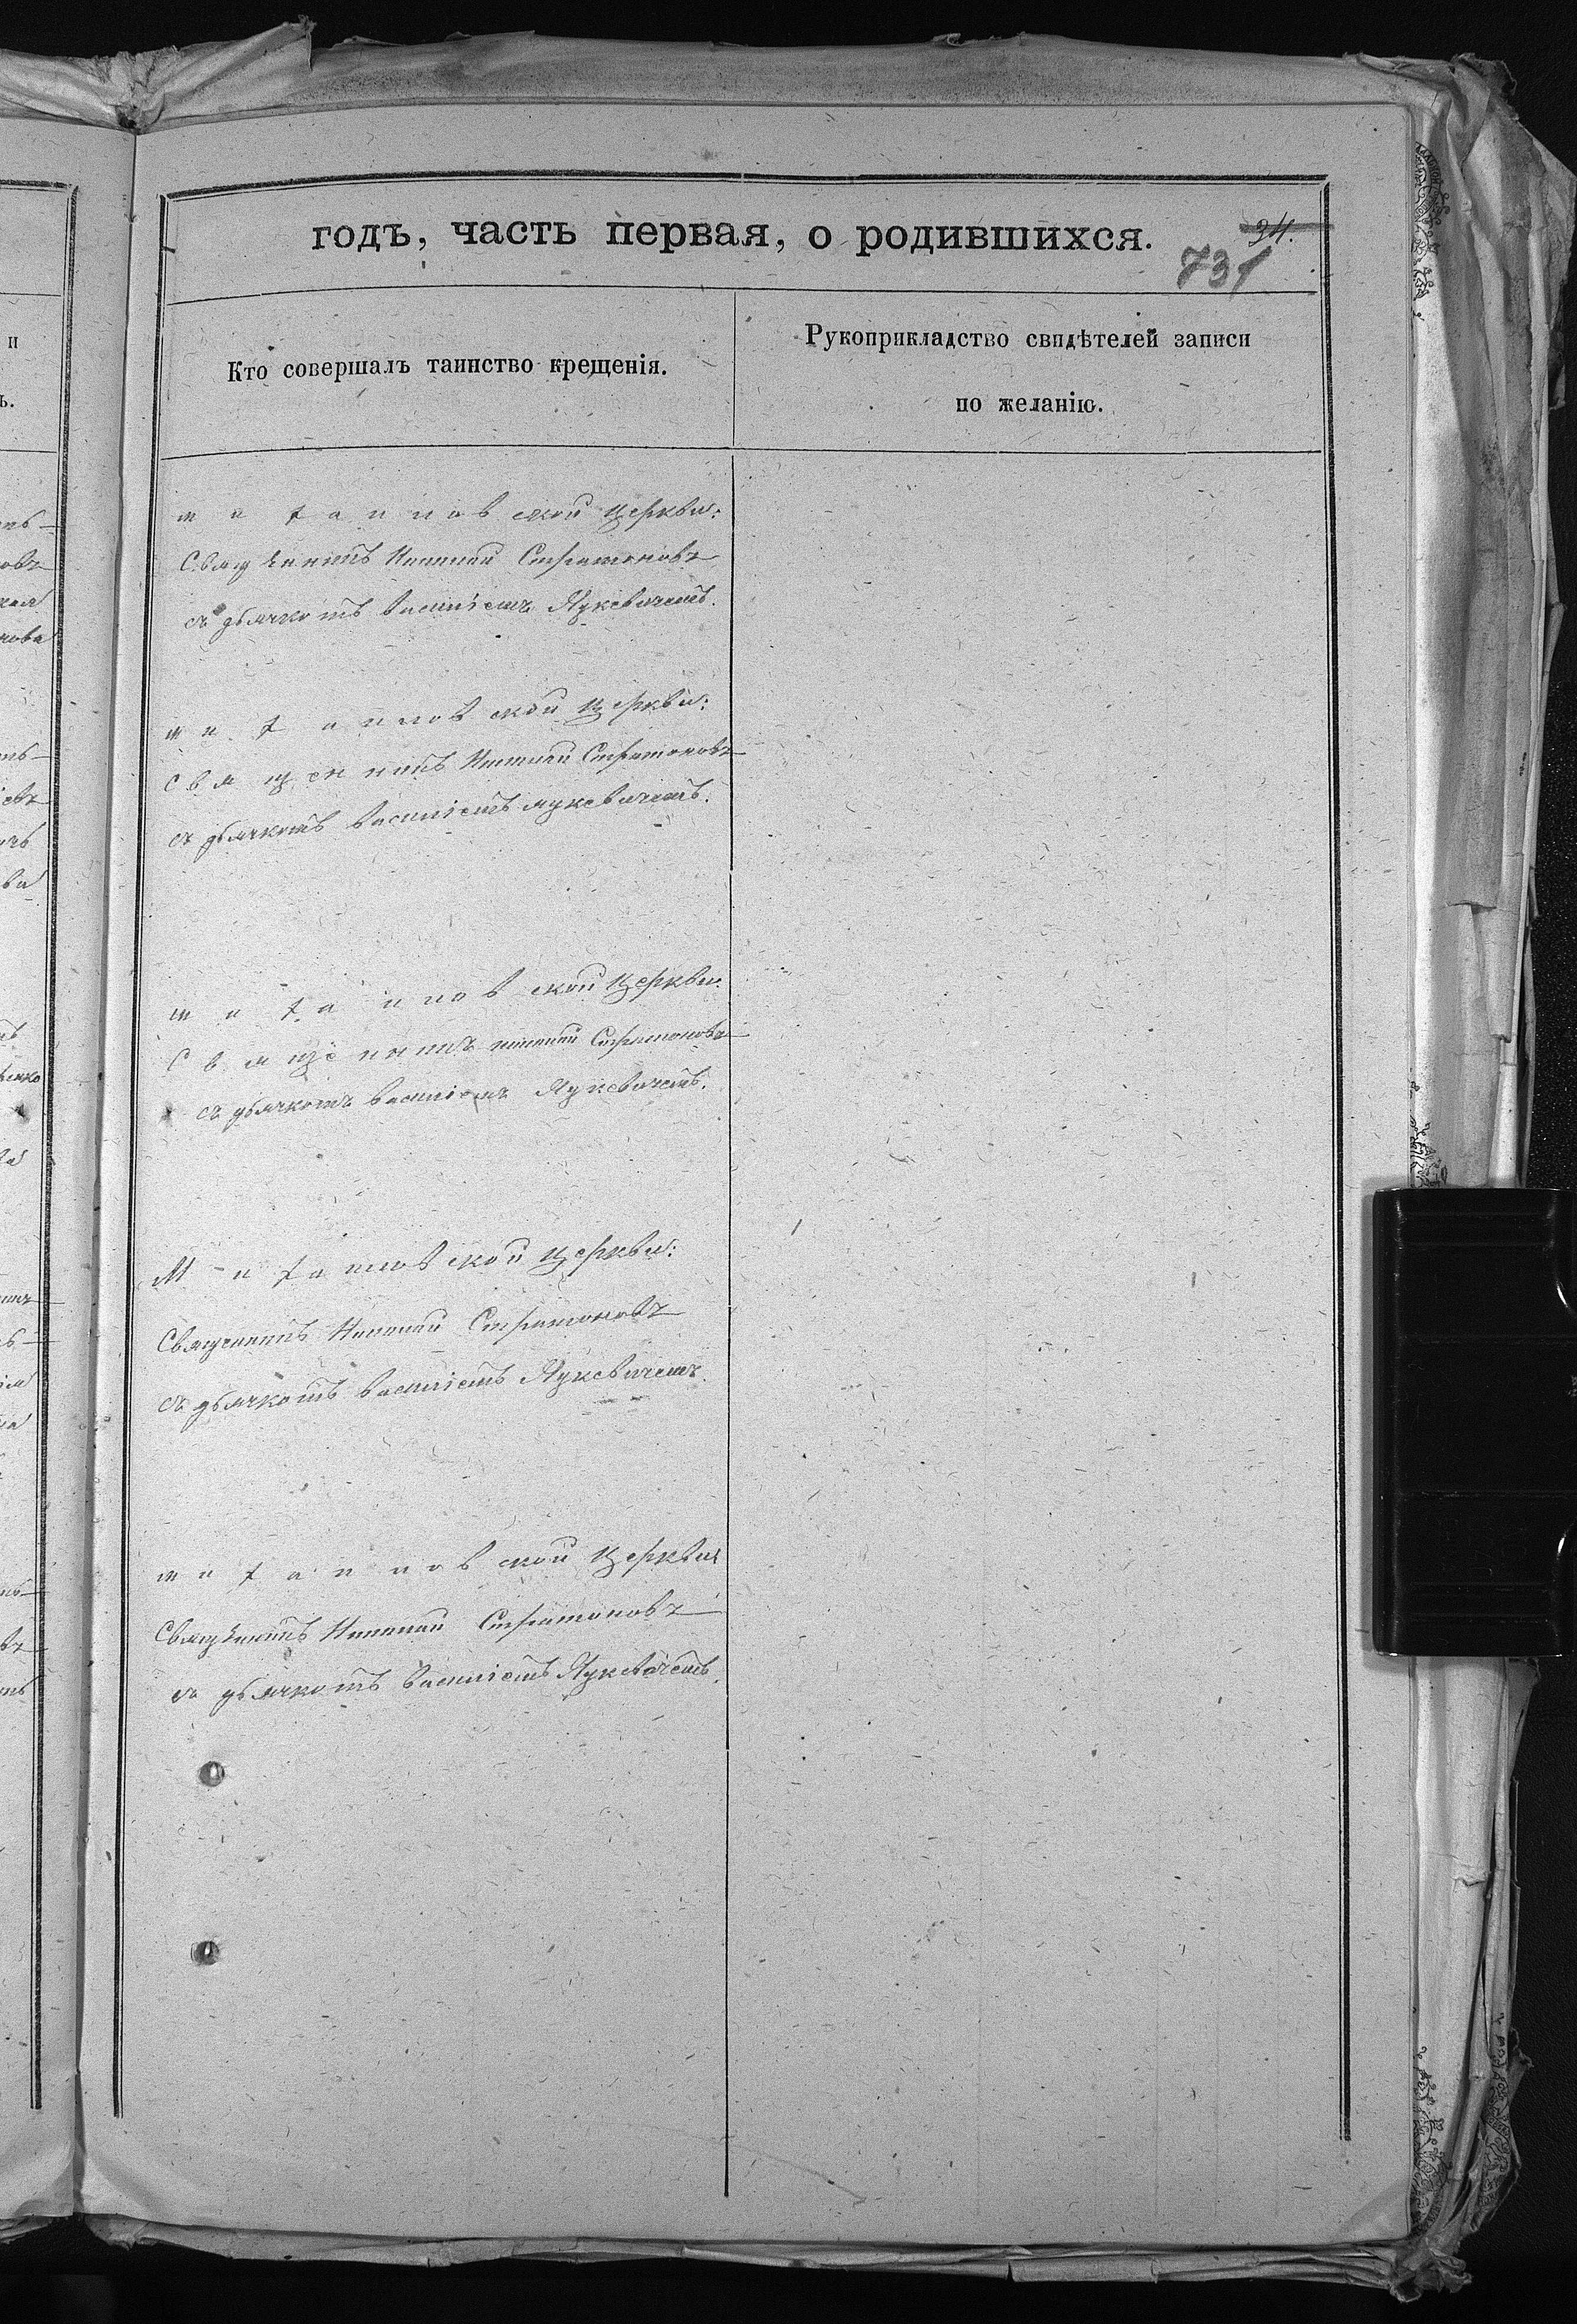 годъ, часть первая, о родившихся.
34.
731
Кто совершалъ таинство крещенія.
Рукоприкладство свидѣтелей записи
по желанію.
ской церкви:
Священникъ Стратоновъ
съ дьячкомъ Василіемъ Лукевичемъ.
ской церкви:
Священникъ Стратоновъ
съ дьячкомъ Василіемъ Лукевичемъ.
ской церкви
Священникъ Стратоновъ
съ дьячкомъ Василіемъ Лукевичемъ.
ской церкви:
Священникъ Стратоновъ
съ дьячкомъ Василіемъ Лукевичемъ.
ской церкви
Священникъ Стратоновъ
съ дьячкомъ Василіемъ Лукевичемъ.